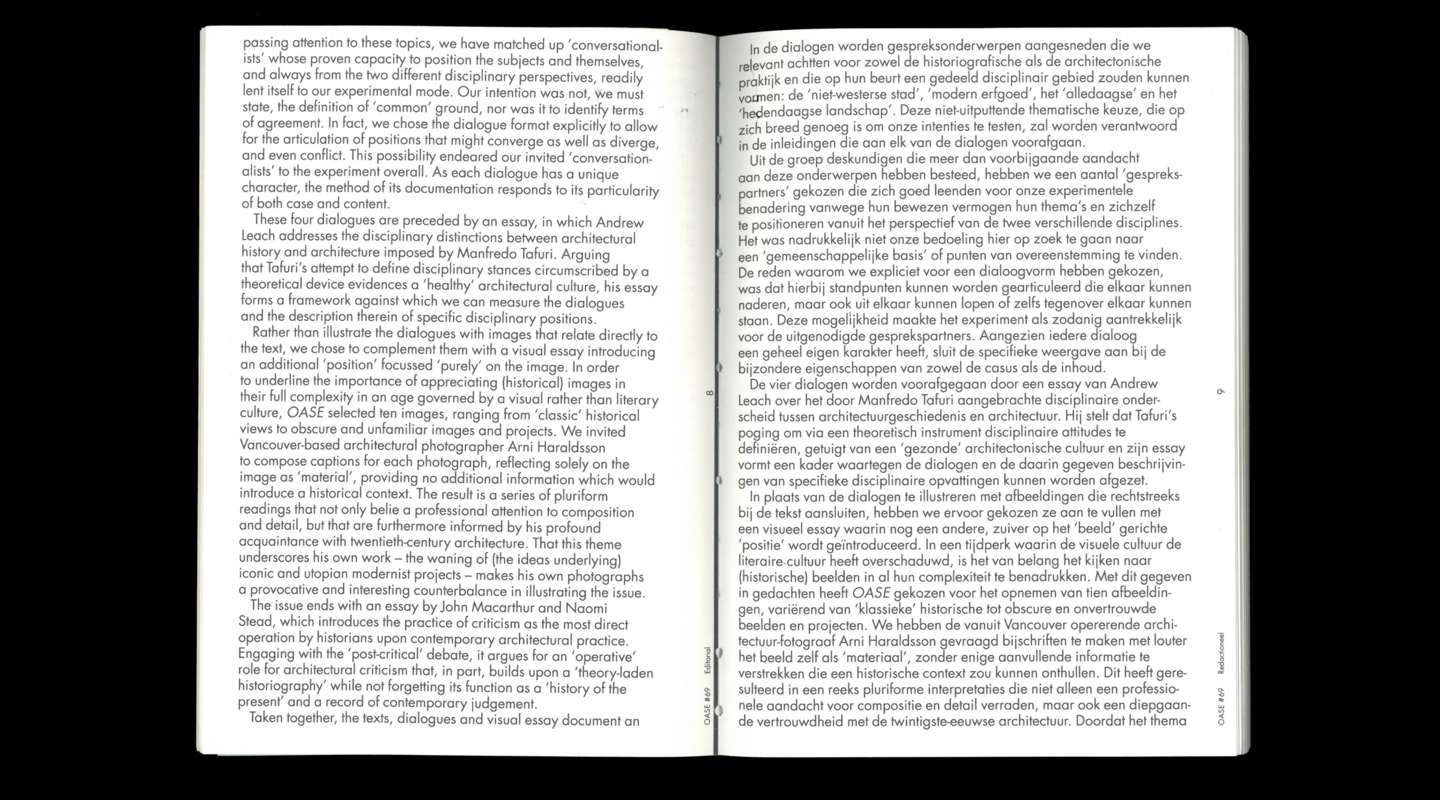 passing attention to these topics, we have matched up ‘conversational-
ists’ whose proven capacity to position the subjects and themselves,
and always from the two different disciplinary perspectives, readily
lent itself to our experimental mode. Our intention was not, we must
state, the definition of ‘common’ ground, nor was it to identify terms
of agreement. In fact, we chose the dialogue format explicitly to allow
for the articulation of positions that might converge as well as diverge,
and even conflict. This possibility endeared our invited ‘conversation-
alists’ to the experiment overall. As each dialogue has a unique
character, the method of its documentation responds to its particularity
of both case and content.
These four dialogues are preceded by an essay, in which Andrew
Leach addresses the disciplinary distinctions between architectural
history and architecture imposed by Manfredo Tafuri. Arguing
that Tafuri’s attempt to define disciplinary stances circumscribed by a
theoretical device evidences a ‘healthy’ architectural culture, his essay
forms a framework against which we can measure the dialogues
and the description therein of specific disciplinary positions.
Rather than illustrate the dialogues with images that relate directly to
the text, we chose to complement them with a visual essay introducing
an additional ‘position’ focussed ‘purely’ on the image. In order
to underline the importance of appreciating (historical) images in
their full complexity in an age governed by a visual rather than literary
culture, OASE selected ten images, ranging from ‘classic’ historical
views to obscure and unfamiliar images and projects. We invited
Vancouver-based architectural photographer Arni Haraldsson
to compose captions for each photograph, reflecting solely on the
image as ‘material’, providing no additional information which would
introduce a historical context. The result is a series of pluriform
readings that not only belie a professional attention to composition
and detail, but that are furthermore informed by his profound
acquaintance with twentieth-century architecture. That this theme
underscores his own work – the waning of (the ideas underlying)
iconic and utopian modernist projects – makes his own photographs
a provocative and interesting counterbalance in illustrating the issue.
The issue ends with an essay by John Macarthur and Naomi
Stead, which introduces the practice of criticism as the most direct
operation by historians upon contemporary architectural practice.
Engaging with the ‘post-critical’ debate, it argues for an ‘operative’
role for architectural criticism that, in part, builds upon a ‘theory-laden
historiography’ while not forgetting its function as a ‘history of the
present’ and a record of contemporary judgement.
Taken together, the texts, dialogues and visual essay document an
8
OASE #69 Editorial
In de dialogen worden gespreksonderwerpen aangesneden die we
relevant achtten voor zowel de historiografische als de architectonische
praktijk en die op hun beurt een gedeeld disciplinair gebied zouden kunnen
vormen: de ‘niet-westerse stad’, ‘modern erfgoed’, het ‘alledaagse’ en het
‘hedendaagse landschap’. Deze niet-uitputtende thematische keuze, die op
zich breed genoeg is om onze intenties te testen, zal worden verantwoord
in de inleidingen die aan elk van de dialogen voorafgaan.
Uit de groep deskundigen die meer dan voorbijgaande aandacht
aan deze onderwerpen hebben besteed, hebben we een aantal ‘gespreks-
partners’ gekozen die zich goed leenden voor onze experimentele
benadering vanwege hun bewezen vermogen hun thema’s en zichzelf
te positioneren vanuit het perspectief van de twee verschillende disciplines.
Het was nadrukkelijk niet onze bedoeling hier op zoek te gaan naar
een ‘gemeenschappelijke basis’ of punten van overeenstemming te vinden.
De reden waarom we expliciet voor een dialoogvorm hebben gekozen,
was dat hierbij standpunten kunnen worden gearticuleerd die elkaar kunnen
naderen, maar ook uit elkaar kunnen lopen of zelfs tegenover elkaar kunnen
staan. Deze mogelijkheid maakte het experiment als zodanig aantrekkelijk
voor de uitgenodigde gesprekspartners. Aangezien iedere dialoog
een geheel eigen karakter heeft, sluit de specifieke weergave aan bij de
bijzondere eigenschappen van zowel de casus als de inhoud.
De vier dialogen worden voorafgegaan door een essay van Andrew
Leach over het door Manfredo Tafuri aangebrachte disciplinaire onder-
scheid tussen architectuurgeschiedenis en architectuur. Hij stelt dat Tafuri’s
poging om via een theoretisch instrument disciplinaire attitudes te
definiëren, getuigt van een ‘gezonde’ architectonische cultuur en zijn essay
vormt een kader waartegen de dialogen en de daarin gegeven beschrijvin-
gen van specifieke disciplinaire opvattingen kunnen worden afgezet.
In plaats van de dialogen te illustreren met afbeeldingen die rechtstreeks
bij de tekst aansluiten, hebben we ervoor gekozen ze aan te vullen met
een visueel essay waarin nog een andere, zuiver op het ‘beeld’ gerichte
‘positie’ wordt geïntroduceerd. In een tijdperk waarin de visuele cultuur de
literaire cultuur heeft overschaduwd, is het van belang het kijken naar
(historische) beelden in al hun complexiteit te benadrukken. Met dit gegeven
in gedachten heeft OASE gekozen voor het opnemen van tien afbeeldin-
gen, variërend van ‘klassieke’ historische tot obscure en onvertrouwde
beelden en projecten. We hebben de vanuit Vancouver opererende archi-
tectuur-fotograaf Arni Haraldsson gevraagd bijschriften te maken met louter
het beeld zelf als ‘materiaal’, zonder enige aanvullende informatie te
verstrekken die een historische context zou kunnen onthullen. Dit heeft gere-
sulteerd in een reeks pluriforme interpretaties die niet alleen een professio-
nele aandacht voor compositie en detail verraden, maar ook een diepgaan-
de vertrouwdheid met de twintigste-eeuwse architectuur. Doordat het thema
9
OASE #69 Redactioneel